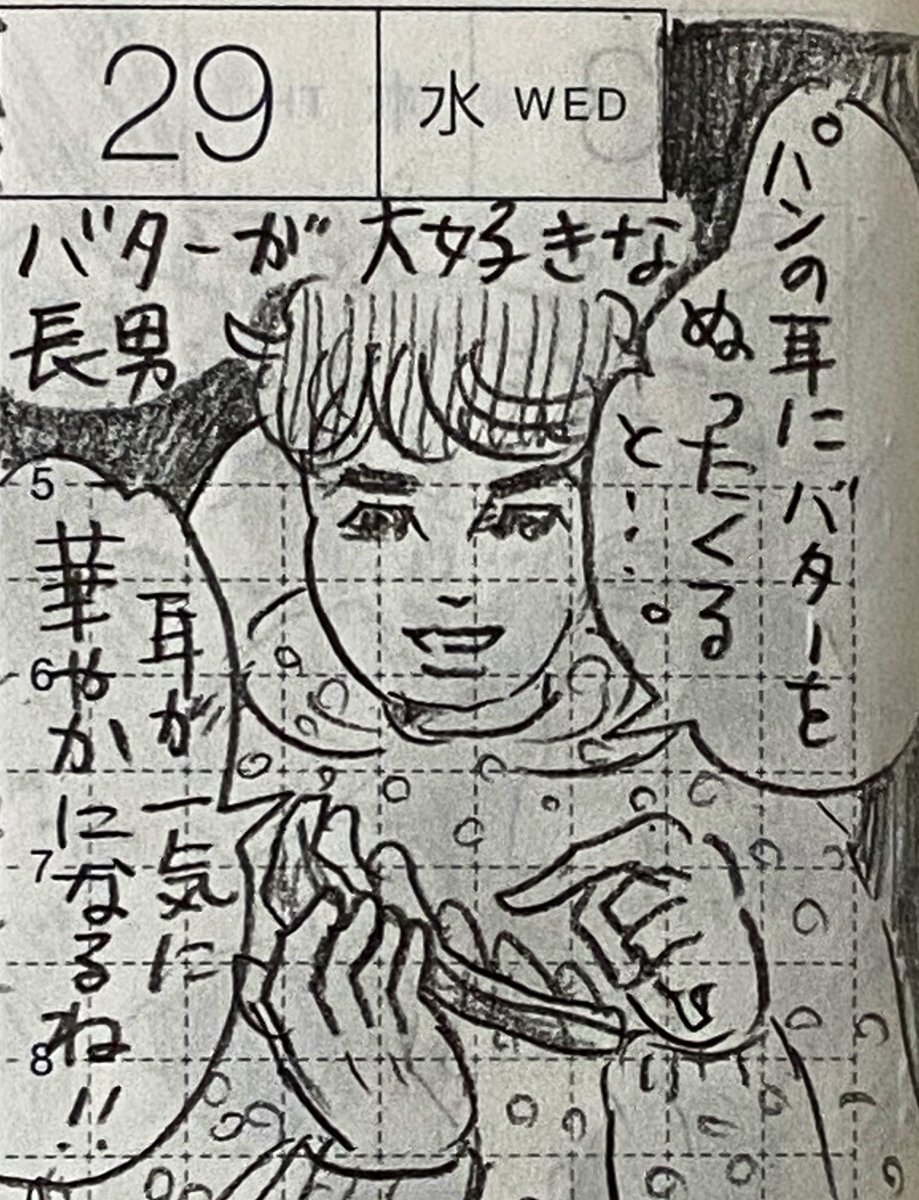 29
水 WED
バターが 大好きな
長男
パンの耳にバターを
ぬったくる
と…。
耳が一気に
華やかになるね!!
5
6
7
8